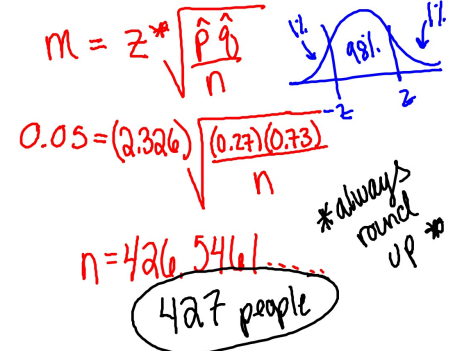 m = z* √(p̂ q̂ / n)
1% 98% 1%
-z z
0.05 = (2.326) √((0.27)(0.73) / n)
*always
round
up*
n = 426.5461.....
427 people